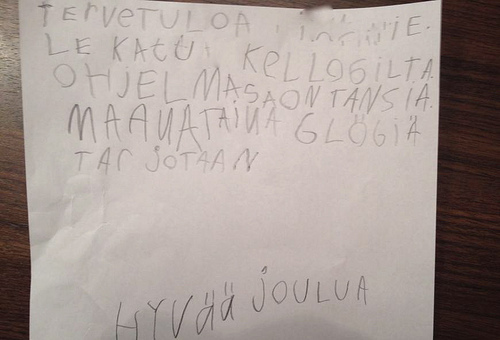 TERVETULOA
LE KATTI KELLOGILTA
OHJELMASAON TANSIA.
MAANATAINA GLÖGIÄ
TARJOTAAN
HYVÄÄ JOULUA